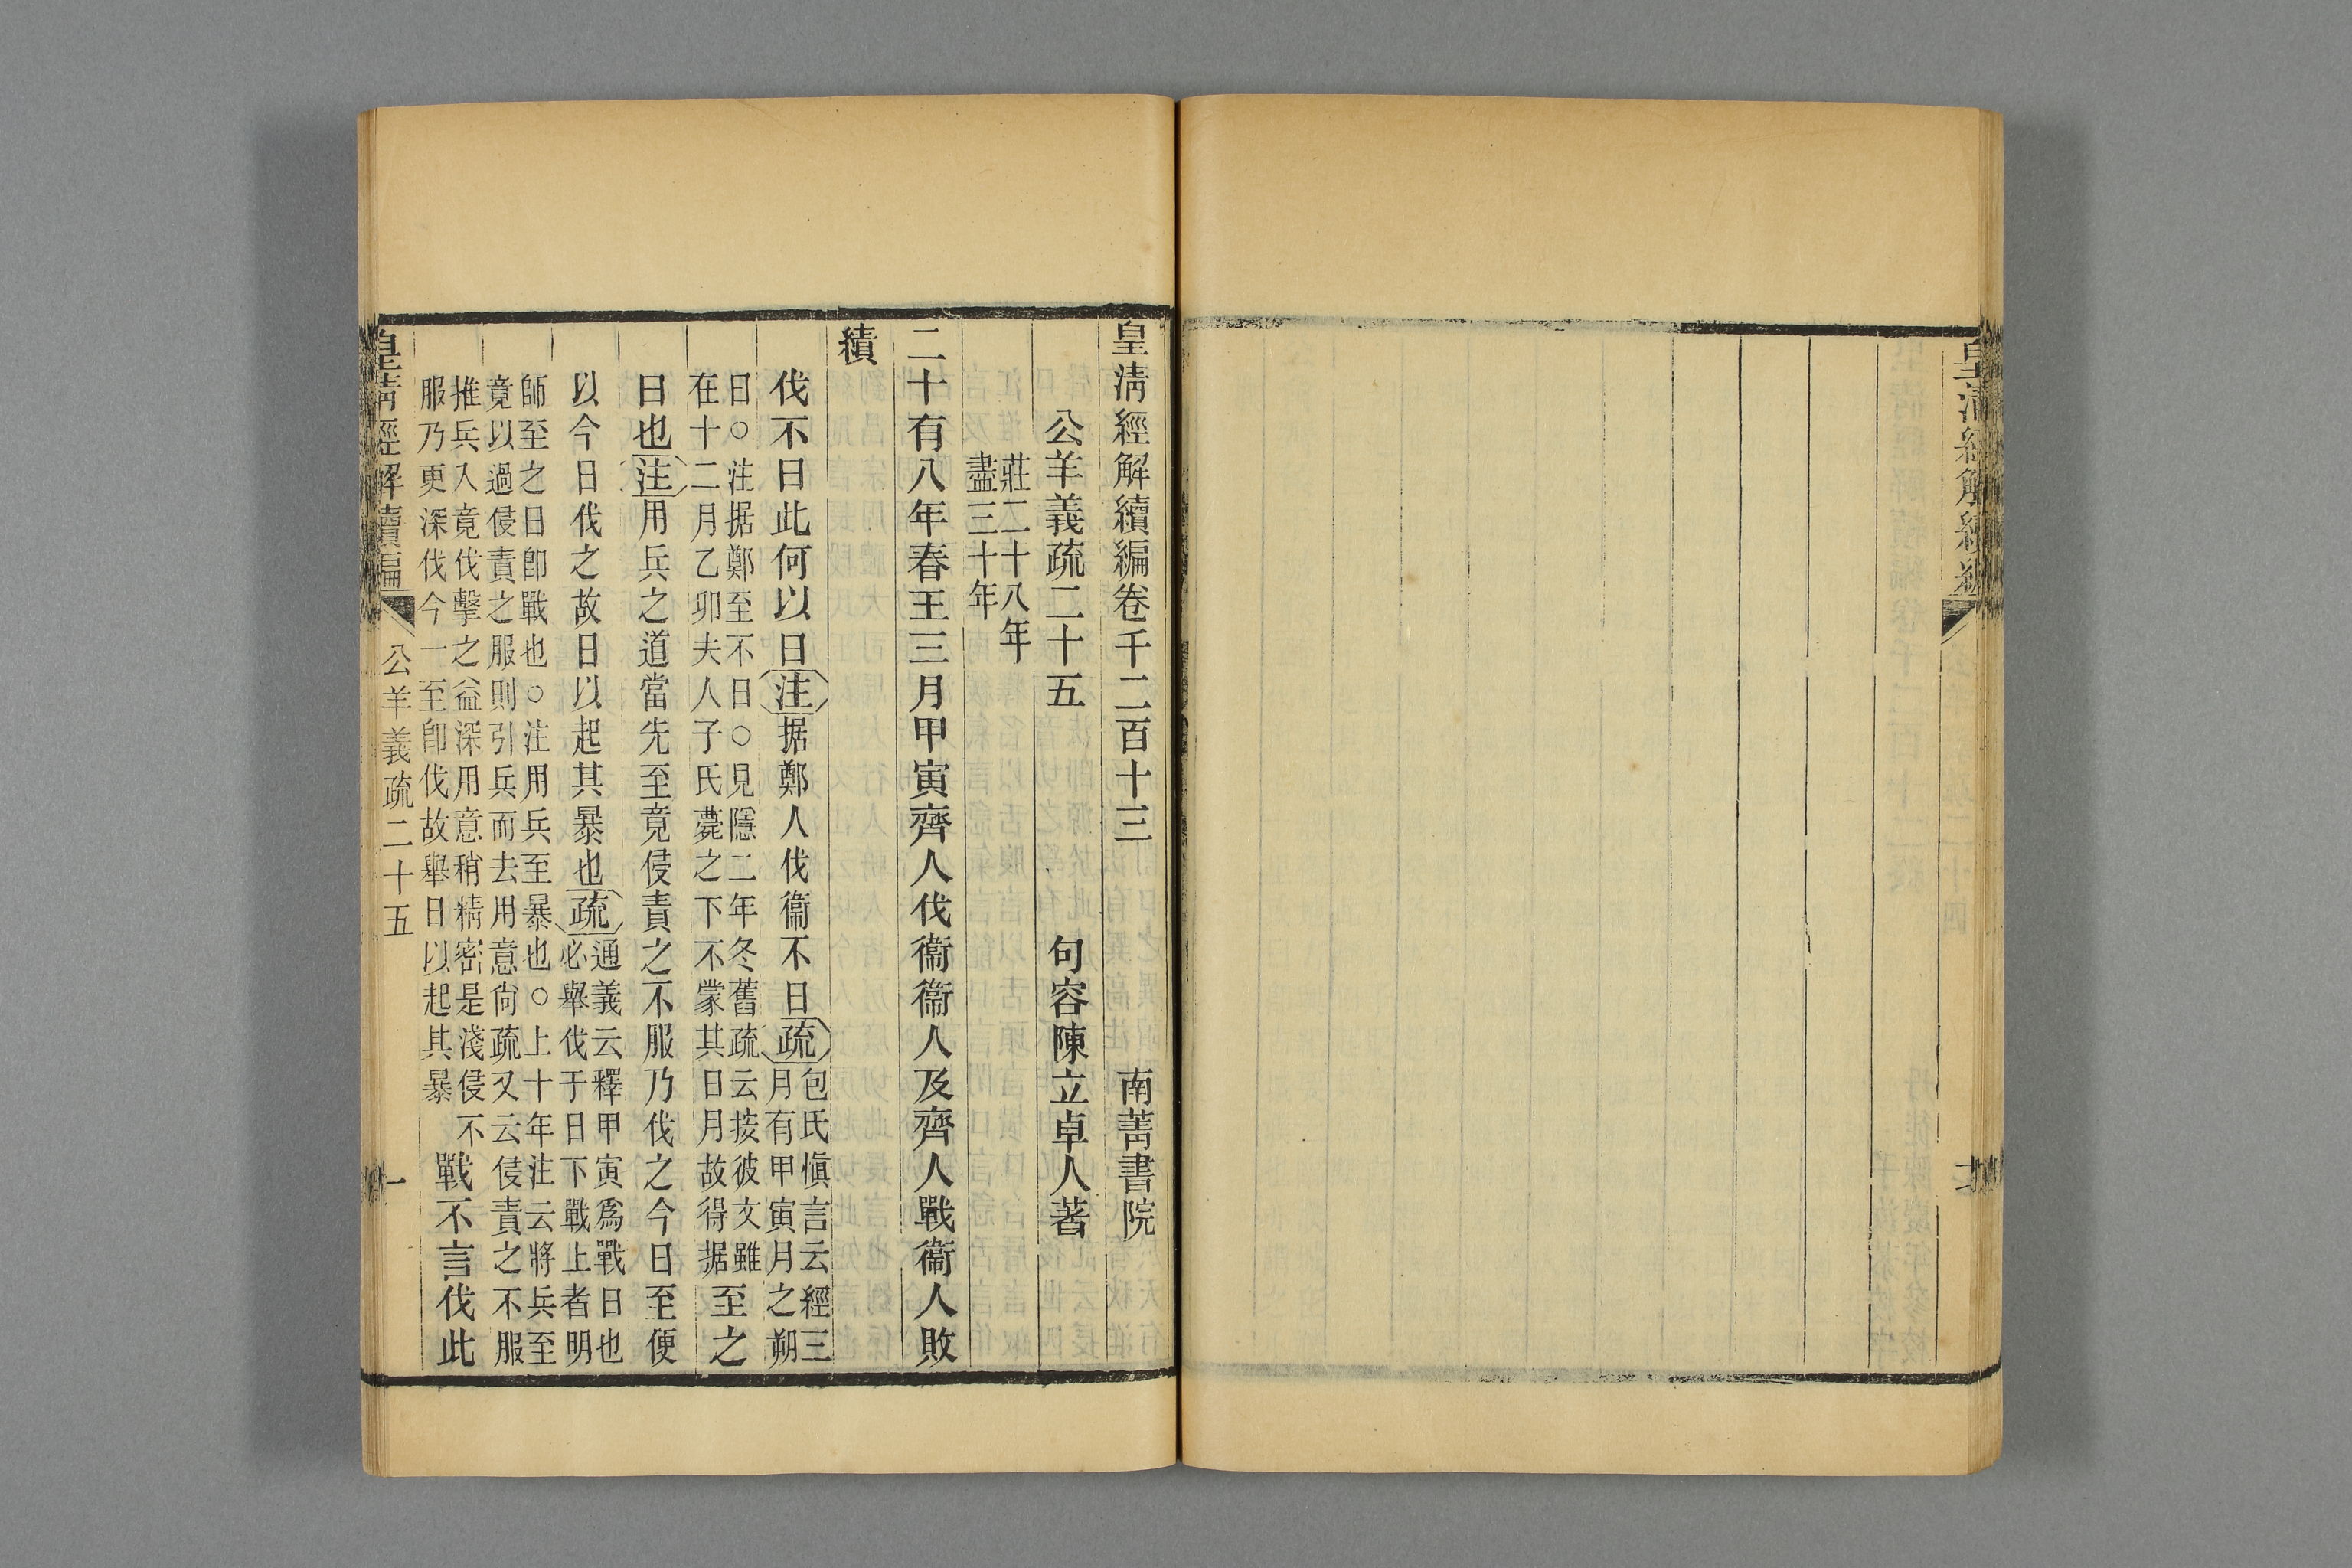 皇清經解續編
皇清經解續編卷千二百十三　南菁書院
公羊義疏二十五　句容陳立卓人著
莊二十八年
盡三十年
二十有八年春王三月甲寅齊人伐衞衞人及齊人戰衞人敗
績
伐不日此何以日注据鄭人伐衞不日疏
包氏愼言云經三
月有甲寅月之朔
日○注据鄭至不日○見隱二年冬舊疏云按彼文雖
在十二月乙卯夫人子氏薨之下不蒙其日月故得据
至之
日也注用兵之道當先至竟侵責之不服乃伐之今日至便
以今日伐之故日以起其暴也疏
通義云釋甲寅爲戰日也
必舉伐于日下戰上者明
師至之日卽戰也○注用兵至暴也○上十年注云將兵至
竟以過侵責之服則引兵而去用意尙疏又云侵責之不服
推兵入竟伐擊之益深用意稍精密是淺侵不
服乃更深伐今一至卽伐故舉日以起其暴
戰不言伐此
皇清經解續編　公羊義疏二十五　一